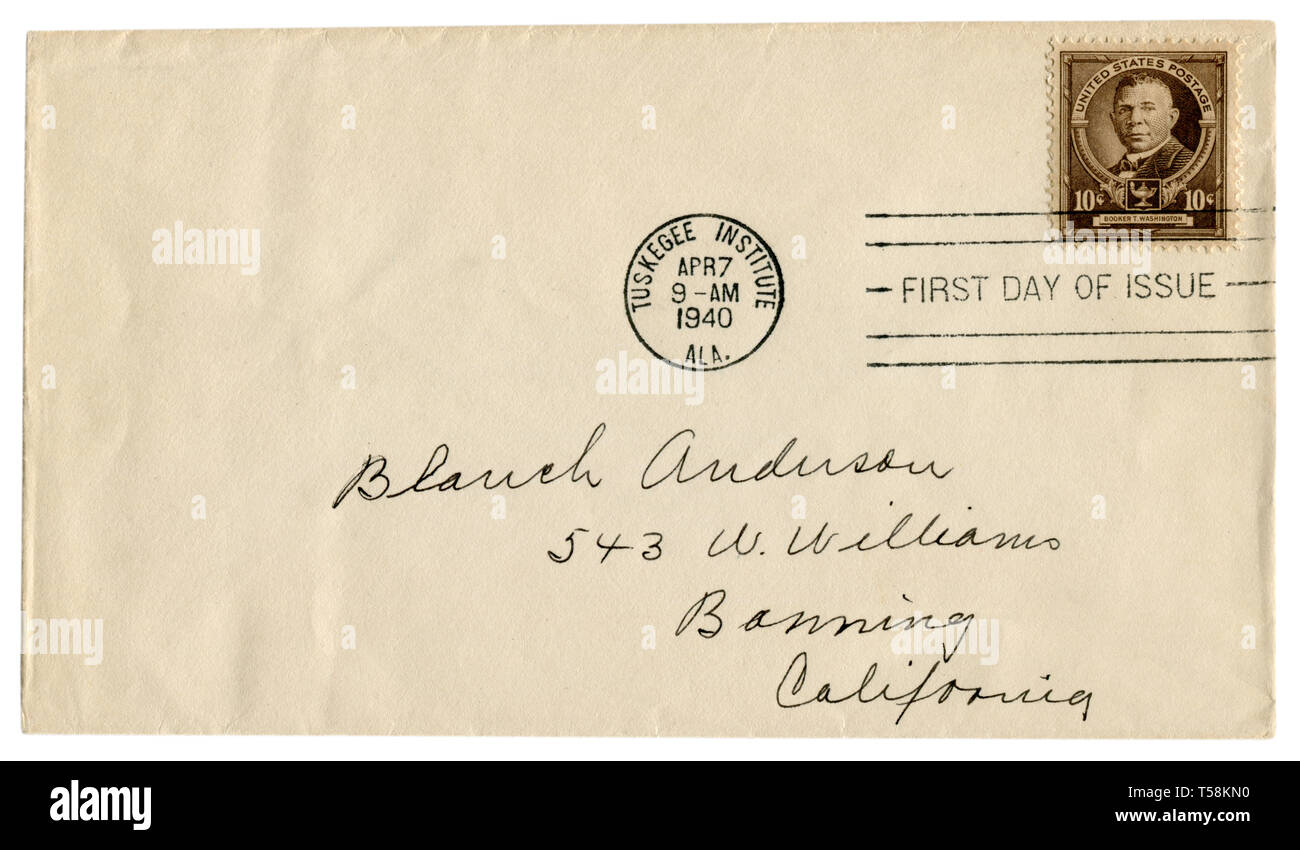 UNITED STATES POSTAGE
10¢ 10¢
BOOKER T. WASHINGTON
TUSKEGEE INSTITUTE
APR 7
9-AM
1940
ALA.
FIRST DAY OF ISSUE
Blanch Anderson
543 W. Williams
Banning
California
a alamy stock photo
alamy
Image ID: T58KN0
www.alamy.com